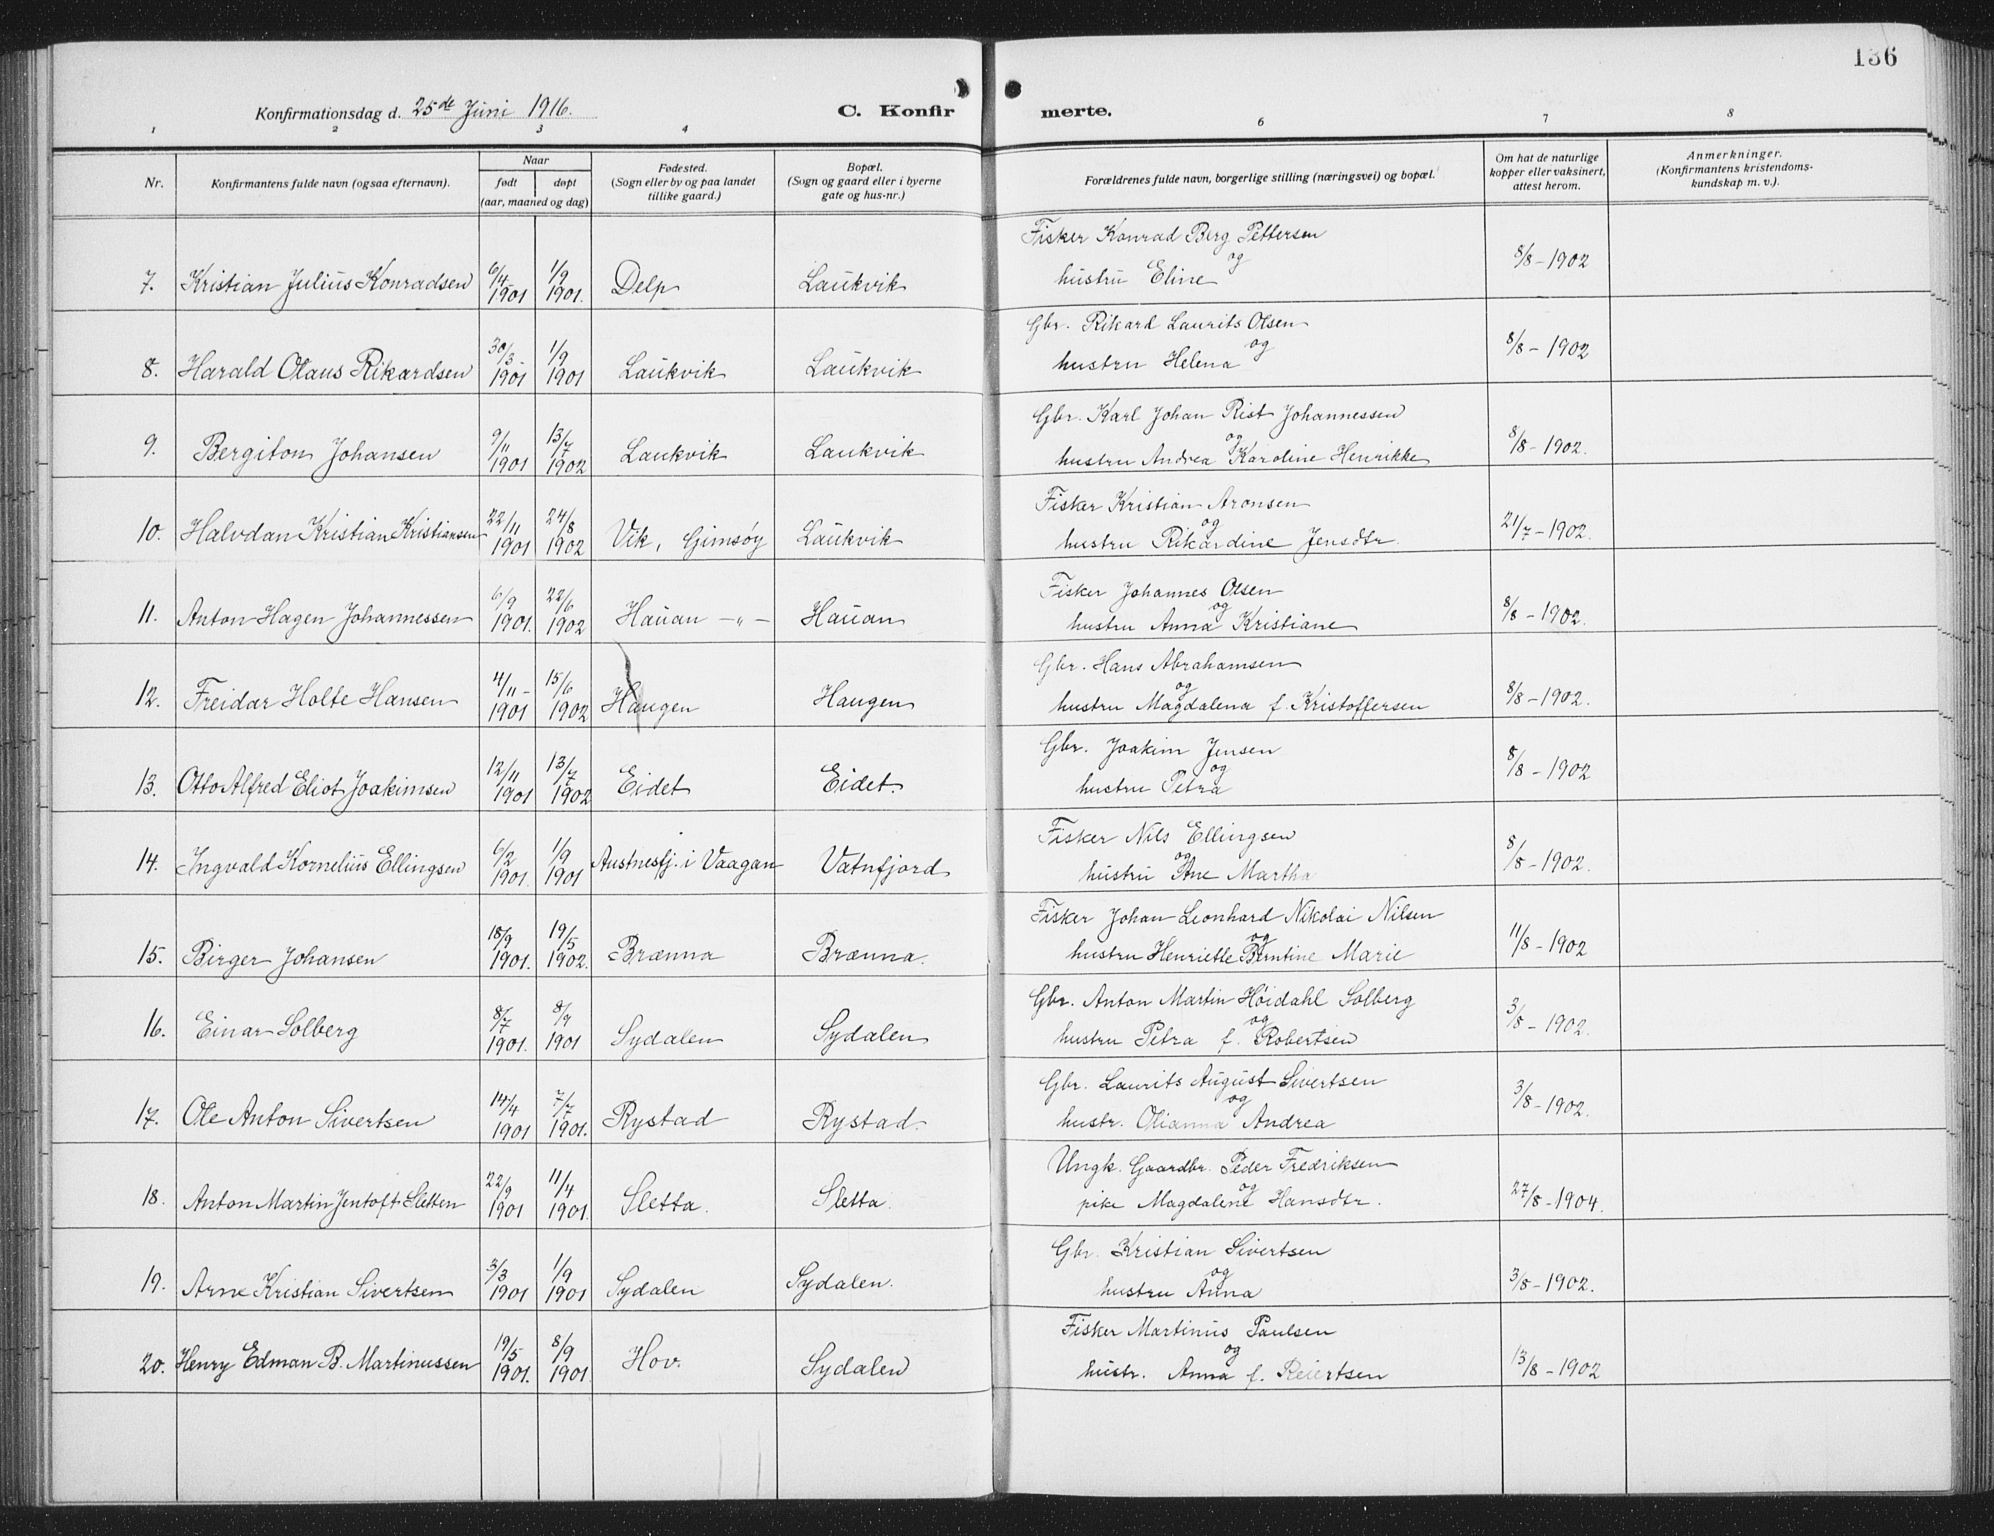 136
Konfirmationsdag d. 25de Juni 1916. C. Konfirmerte.
1 2 3 4 6 7 8
Nr. Konfirmantens fulde navn (ogsaa efternavn). Naar født døpt (aar, maaned og dag) Fødested. (Sogn eller by og paa landet tillike gaard.) Bopæl. (Sogn og gaard eller i byerne gate og hus-nr.) Forældrenes fulde navn, borgerlige stilling (næringsvei) og bopæl. Om hat de naturlige kopper eller vaksinert, attest herom. Anmerkninger. (Konfirmantens kristendomskundskap m. v.).
7. Kristian Julius Konradsen 6/4 1901 1/9 1901. Delp Laukvik Fisker Konrad Berg Pettersen og hustru Eline 8/8 - 1902
8. Harald Olaus Rikardsen 30/3 - 1901 1/9 1901 Laukvik Laukvik Gbr. Rikard Laurits Olsen og hustru Helena 8/8 - 1902
9. Bergiton Johansen 9/11 1901 13/7 1902 Laukvik Laukvik Gbr. Karl Johan Rist Johannessen og hustru Andrea Karoline Henrikke 8/8 - 1902.
10. Halvdan Kristian Kristiansen 22/11 1901 24/8 1902 Vik, Gimsøy Laukvik Fisker Kristian Aronsen og hustru Rikardine Jensdtr. 21/7 - 1902.
11. Anton Hagen Johannessen 6/9 1901. 22/6 1902 Hauan - „ - Hauan Fisker Johannes Olsen og hustru Anna Kristiane 8/8 - 1902.
12. Freidar Holte Hansen 4/11 - 1901 15/6 1902 Haugen Haugen Gbr. Hans Abrahamsen og hustru Magdalena f. Kristoffersen 8/8 - 1902.
13. Otto Alfred Eliot Joakimsen 12/11 1901 13/7 1902 Eidet Eidet. Gbr. Joakim Jensen og hustru Petra 8/8 - 1902
14. Ingvald Kornelius Ellingsen 6/2 1901. 1/9 1901 Austnesfj. i Vaagan Vatnfjord Fisker Nils Ellingsen og hustru Ane Martha 8/8 - 1902.
15. Birger Johansen 18/9 1901. 19/5 1902. Brænna Brænna. Fisker Johan Leonhard Nikolai Nilsen og hustru Henriette Berntine Marie 11/8 - 1902
16. Einar Solberg 8/7 1901. 8/9 1901 Sydalen Sydalen Gbr. Anton Martin Høidahl Solberg og hustru Petra f. Robertsen 3/8 - 1902.
17. Ole Anton Sivertsen 14/4 1901 7/7 1901. Rystad Rystad. Gbr. Laurits August Sivertsen og hustr. Olianna Andrea 3/8 - 1902.
18. Anton Martin Jentoft Sletten 22/9 1901 11/4 1901. Sletta. Sletta. Ungk. Gaardbr. Peder Fredriksen og pike Magdalene Hansdtr. 27/8 - 1904.
19. Arne Kristian Sivertsen 3/3 1901 1/9 1901 Sydalen Sydalen. Gbr. Kristian Sivertsen og hustru Anna 3/8 - 1902.
20. Henry Edman B. Martinussen 19/5 1901. 8/9 1901. Hov. Sydalen Fisker Martinus Paulsen og hustr. Anna f. Reiertsen 13/8 - 1902